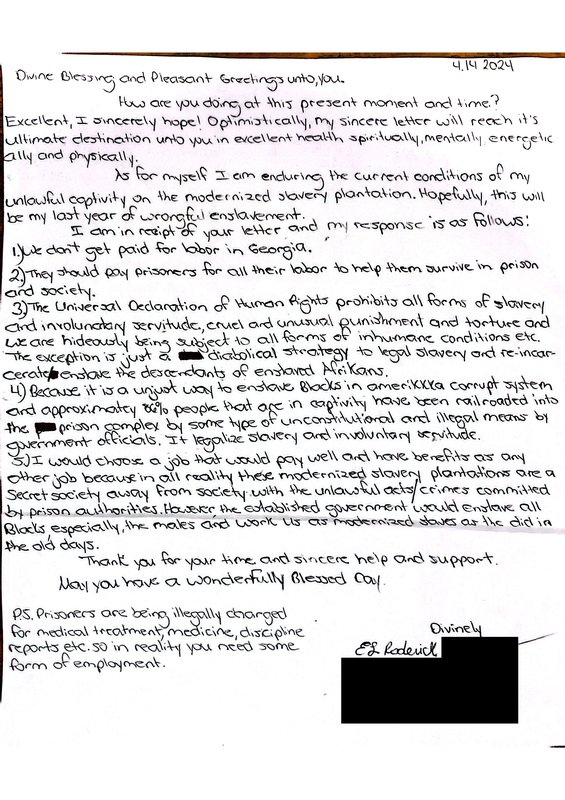 4.14 2024
Divine Blessing and Pleasant Greetings unto, you.
How are you doing at this present moment and time?
Excellent, I sincerely hope! Optimistically, my sincere letter will reach it's
ultimate destination unto you in excellent health spiritually, mentally, energetic
ally and physically.
As for myself I am enduring the current conditions of my
unlawful captivity on the modernized slavery plantation. Hopefully, this will
be my last year of wrongful enslavement.
I am in reciept of your letter and my response is as follows:
1.) We don't get paid for labor in Georgia.
2.) They should pay prisoners for all their labor to help them survive in prison
and society.
3.) The Universal Declaration of Human Rights prohibits all forms of slavery
and involundary servitude, cruel and unusual punishment and torture and
we are hideously being subject to all forms of inhumane conditions etc.
The exception is just a diabolical strategy to legal slavery and re-incar-
cerate enslave the descendants of enslaved Afrikans.
4.) Because it is a unjust way to enslave Blacks in ameriKKKa corrupt system
and approximatcy % people that are in captivity have been railroaded into
the prison complex by some type of unconstitutional and illegal means by
government officials. It legalize slavery and involuntary servitude.
5.) I would choose a job that would pay well and have benefits as any
other job because in all reality these modernized slavery plantations are a
secret society away from society with the unlawful acts/crimes committed
by prison authorities. However the established government would enslave all
Blacks especially, the males and work us as modernized slaves as the did in
the old days.
Thank you for your time and sincere help and support.
May you have a wonderfully Blessed Day.
P.S. Prisoners are being illegally charged
for medical treatment, medicine, discipline
reports etc. so in reality you need some
form of employment.
Divinely
Roderick